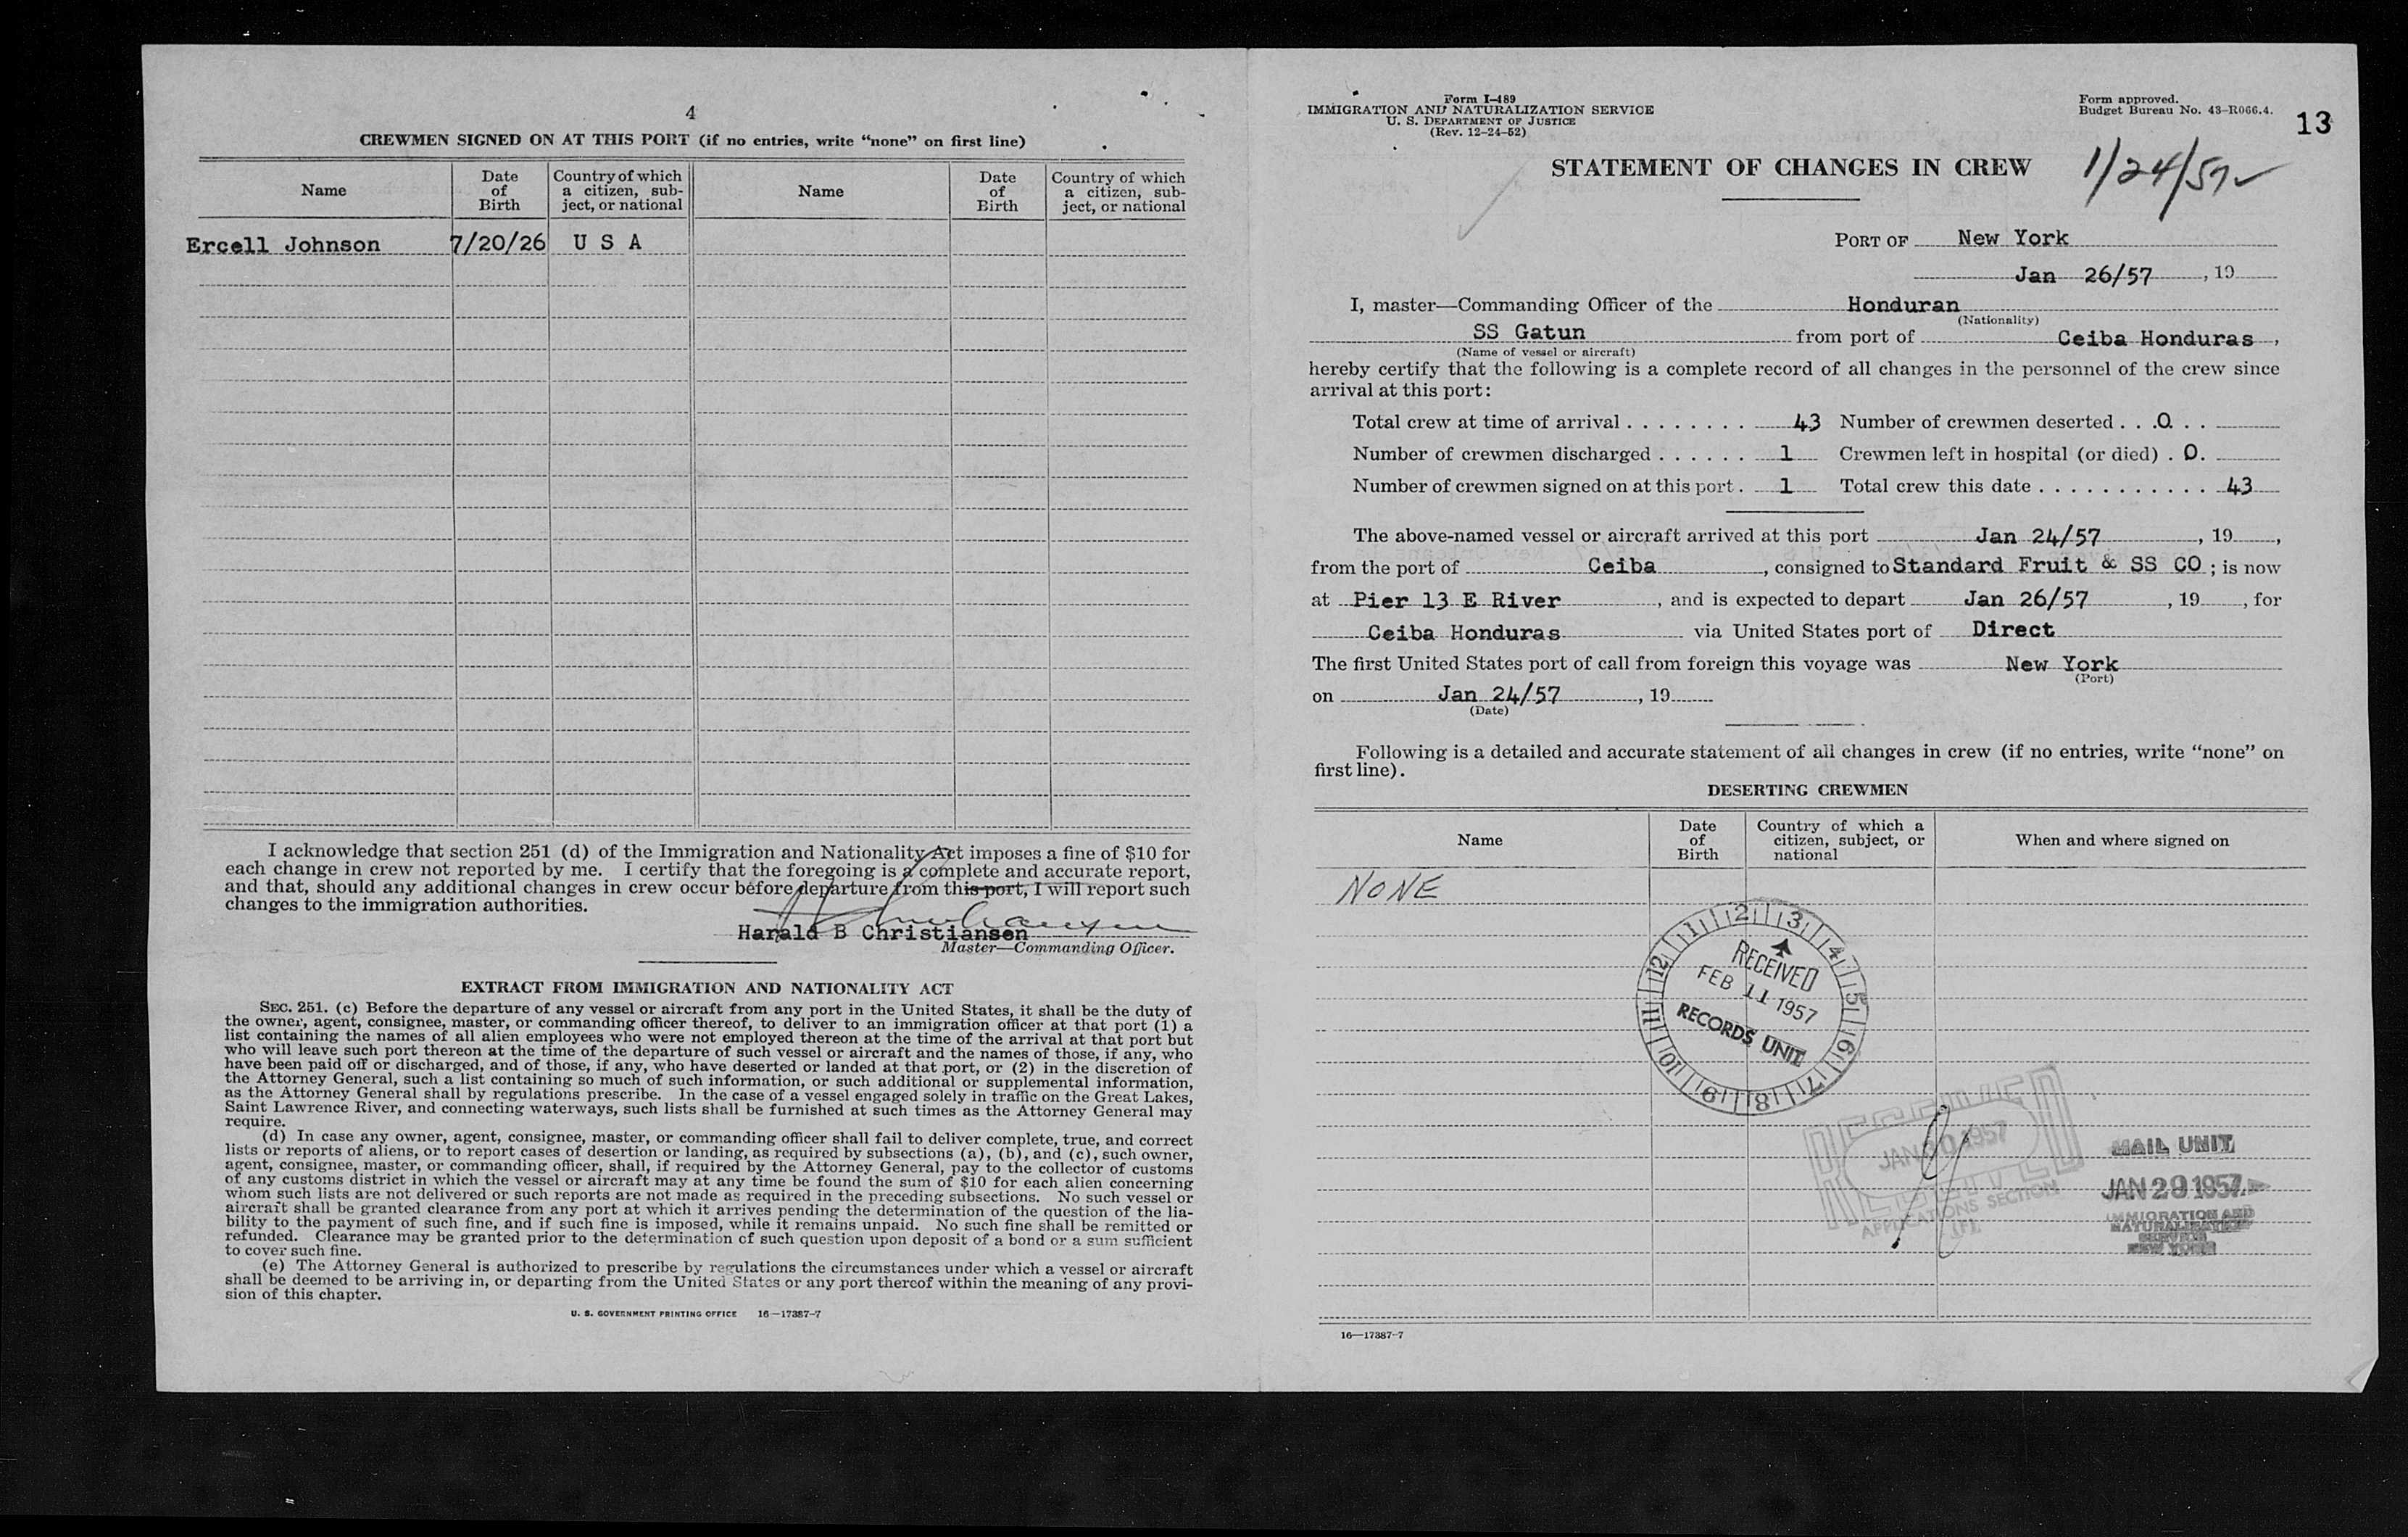 4
CREWMEN SIGNED ON AT THIS PORT (if no entries, write “none” on first line)
Name Date of Birth Country of which a citizen, sub- ject, or national Name Date of Birth Country of which a citizen, sub- ject, or national
Ercell Johnson 7/20/26 U S A
I acknowledge that section 251 (d) of the Immigration and Nationality Act imposes a fine of $10 for
each change in crew not reported by me. I certify that the foregoing is a complete and accurate report,
and that, should any additional changes in crew occur before departure from this port, I will report such
changes to the immigration authorities.
Harald B Christiansen
Master—Commanding Officer.
EXTRACT FROM IMMIGRATION AND NATIONALITY ACT
SEC. 251. (c) Before the departure of any vessel or aircraft from any port in the United States, it shall be the duty of
the owner, agent, consignee, master, or commanding officer thereof, to deliver to an immigration officer at that port (1) a
list containing the names of all alien employees who were not employed thereon at the time of the arrival at that port but
who will leave such port thereon at the time of the departure of such vessel or aircraft and the names of those, if any, who
have been paid off or discharged, and of those, if any, who have deserted or landed at that port, or (2) in the discretion of
the Attorney General, such a list containing so much of such information, or such additional or supplemental information,
as the Attorney General shall by regulations prescribe. In the case of a vessel engaged solely in traffic on the Great Lakes,
Saint Lawrence River, and connecting waterways, such lists shall be furnished at such times as the Attorney General may
require.
(d) In case any owner, agent, consignee, master, or commanding officer shall fail to deliver complete, true, and correct
lists or reports of aliens, or to report cases of desertion or landing, as required by subsections (a), (b), and (c), such owner,
agent, consignee, master, or commanding officer, shall, if required by the Attorney General, pay to the collector of customs
of any customs district in which the vessel or aircraft may at any time be found the sum of $10 for each alien concerning
whom such lists are not delivered or such reports are not made as required in the preceding subsections. No such vessel or
aircraft shall be granted clearance from any port at which it arrives pending the determination of the question of the lia-
bility to the payment of such fine, and if such fine is imposed, while it remains unpaid. No such fine shall be remitted or
refunded. Clearance may be granted prior to the determination of such question upon deposit of a bond or a sum sufficient
to cover such fine.
(e) The Attorney General is authorized to prescribe by regulations the circumstances under which a vessel or aircraft
shall be deemed to be arriving in, or departing from the United States or any port thereof within the meaning of any provi-
sion of this chapter.
U. S. GOVERNMENT PRINTING OFFICE 16—17387-7
Form I-489
IMMIGRATION AND NATURALIZATION SERVICE
U. S. DEPARTMENT OF JUSTICE
(Rev. 12-24-52)
Form approved.
Budget Bureau No. 43-R066.4.
13
STATEMENT OF CHANGES IN CREW
1/24/57
PORT OF New York
Jan 26/57, 19
I, master—Commanding Officer of the Honduran
(Nationality)
SS Gatun from port of Ceiba Honduras,
(Name of vessel or aircraft)
hereby certify that the following is a complete record of all changes in the personnel of the crew since
arrival at this port:
Total crew at time of arrival . . . . . . . . 43 Number of crewmen deserted . . . 0 . .
Number of crewmen discharged . . . . . . 1 Crewmen left in hospital (or died) . 0.
Number of crewmen signed on at this port . 1 Total crew this date . . . . . . . . . . . . 43
The above-named vessel or aircraft arrived at this port Jan 24/57, 19,
from the port of Ceiba, consigned to Standard Fruit & SS CO; is now
at Pier 13 E River, and is expected to depart Jan 26/57, 19, for
Ceiba Honduras via United States port of Direct
The first United States port of call from foreign this voyage was New York
(Port)
on Jan 24/57, 19
(Date)
Following is a detailed and accurate statement of all changes in crew (if no entries, write “none” on
first line).
DESERTING CREWMEN
Name Date of Birth Country of which a citizen, subject, or national When and where signed on
NONE
1 2 3 4 5 6 7 8 9 10 11 12
RECEIVED
FEB 11 1957
RECORDS UNIT
RECEIVED
JAN 30 1957
APPLICATIONS SECTION
MAIL UNIT
JAN 29 1957
IMMIGRATION AND
NATURALIZATION
SERVICE
NEW YORK
16—17387-7